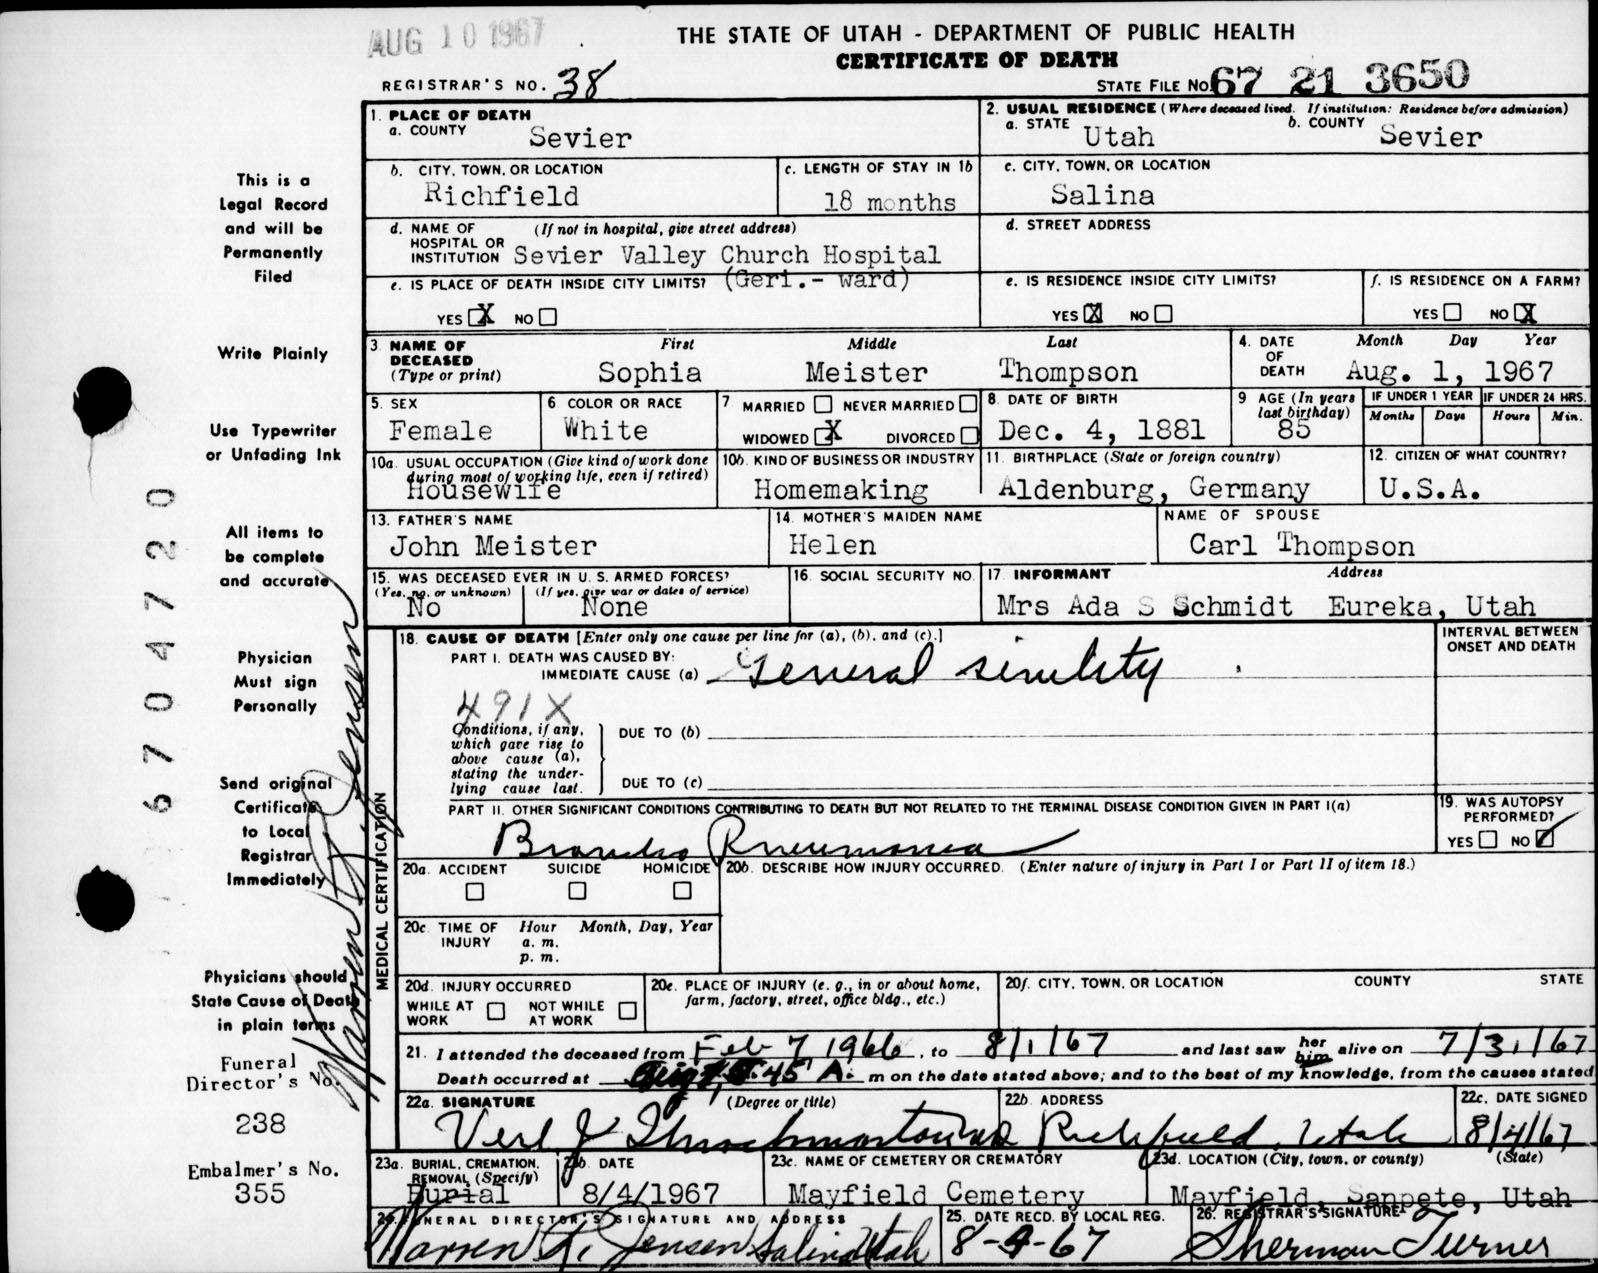 AUG 10 1967
THE STATE OF UTAH - DEPARTMENT OF PUBLIC HEALTH
CERTIFICATE OF DEATH
REGISTRAR'S NO. 38
STATE FILE NO. 67 21 3650
1. PLACE OF DEATH
a. COUNTY Sevier
2. USUAL RESIDENCE (Where deceased lived. If institution: Residence before admission)
a. STATE Utah b. COUNTY Sevier
b. CITY, TOWN, OR LOCATION Richfield
c. LENGTH OF STAY IN 1b 18 months
c. CITY, TOWN, OR LOCATION Salina
d. NAME OF HOSPITAL OR INSTITUTION (If not in hospital, give street address) Sevier Valley Church Hospital (Geri.- ward)
d. STREET ADDRESS
e. IS PLACE OF DEATH INSIDE CITY LIMITS?
YES X NO
e. IS RESIDENCE INSIDE CITY LIMITS?
YES X NO
f. IS RESIDENCE ON A FARM?
YES NO X
3. NAME OF DECEASED (Type or print)
First Middle Last
Sophia Meister Thompson
4. DATE OF DEATH Month Day Year
Aug. 1, 1967
5. SEX Female
6. COLOR OR RACE White
7. MARRIED NEVER MARRIED
WIDOWED X DIVORCED
8. DATE OF BIRTH Dec. 4, 1881
9. AGE (In years last birthday) 85
IF UNDER 1 YEAR Months Days
IF UNDER 24 HRS. Hours Min.
10a. USUAL OCCUPATION (Give kind of work done during most of working life, even if retired)
Housewife
10b. KIND OF BUSINESS OR INDUSTRY
Homemaking
11. BIRTHPLACE (State or foreign country)
Aldenburg, Germany
12. CITIZEN OF WHAT COUNTRY?
U.S.A.
13. FATHER'S NAME
John Meister
14. MOTHER'S MAIDEN NAME
Helen
NAME OF SPOUSE
Carl Thompson
15. WAS DECEASED EVER IN U.S. ARMED FORCES?
(Yes, no, or unknown) (If yes, give war or dates of service)
No None
16. SOCIAL SECURITY NO.
17. INFORMANT Address
Mrs Ada S Schmidt Eureka, Utah
18. CAUSE OF DEATH [Enter only one cause per line for (a), (b), and (c).]
PART I. DEATH WAS CAUSED BY:
IMMEDIATE CAUSE (a) General senility
491X
Conditions, if any, which gave rise to above cause (a), stating the underlying cause last.
DUE TO (b)
DUE TO (c)
INTERVAL BETWEEN ONSET AND DEATH
PART II. OTHER SIGNIFICANT CONDITIONS CONTRIBUTING TO DEATH BUT NOT RELATED TO THE TERMINAL DISEASE CONDITION GIVEN IN PART I(a)
Broncho Pneumonia
19. WAS AUTOPSY PERFORMED?
YES NO
20a. ACCIDENT SUICIDE HOMICIDE
20b. DESCRIBE HOW INJURY OCCURRED. (Enter nature of injury in Part I or Part II of item 18.)
20c. TIME OF INJURY Hour Month, Day, Year
a. m.
p. m.
20d. INJURY OCCURRED
WHILE AT WORK NOT WHILE AT WORK
20e. PLACE OF INJURY (e. g., in or about home, farm, factory, street, office bldg., etc.)
20f. CITY, TOWN, OR LOCATION COUNTY STATE
21. I attended the deceased from Feb 7 1966, to 8/1/67 and last saw her him alive on 7/31/67
Death occurred at 45 A. m on the date stated above; and to the best of my knowledge, from the causes stated
22a. SIGNATURE (Degree or title)
Verl J Throckmorton MD
22b. ADDRESS
Richfield, Utah
22c. DATE SIGNED
8/4/67
23a. BURIAL, CREMATION, REMOVAL (Specify)
Burial
23b. DATE
8/4/1967
23c. NAME OF CEMETERY OR CREMATORY
Mayfield Cemetery
23d. LOCATION (City, town, or county) (State)
Mayfield, Sanpete, Utah
24. FUNERAL DIRECTOR'S SIGNATURE AND ADDRESS
Warren R. Jensen Salina Utah
25. DATE RECD. BY LOCAL REG.
8-4-67
26. REGISTRAR'S SIGNATURE
Sherman Turner
MEDICAL CERTIFICATION
This is a
Legal Record
and will be
Permanently
Filed
Write Plainly
Use Typewriter
or Unfading Ink
All items to
be complete
and accurate
Physician
Must sign
Personally
Send original
Certificate
to Local
Registrar
Immediately
Physicians should
State Cause of Death
in plain terms
Funeral
Director's No.
238
Embalmer's No.
355
Warren R. Jensen
6704720